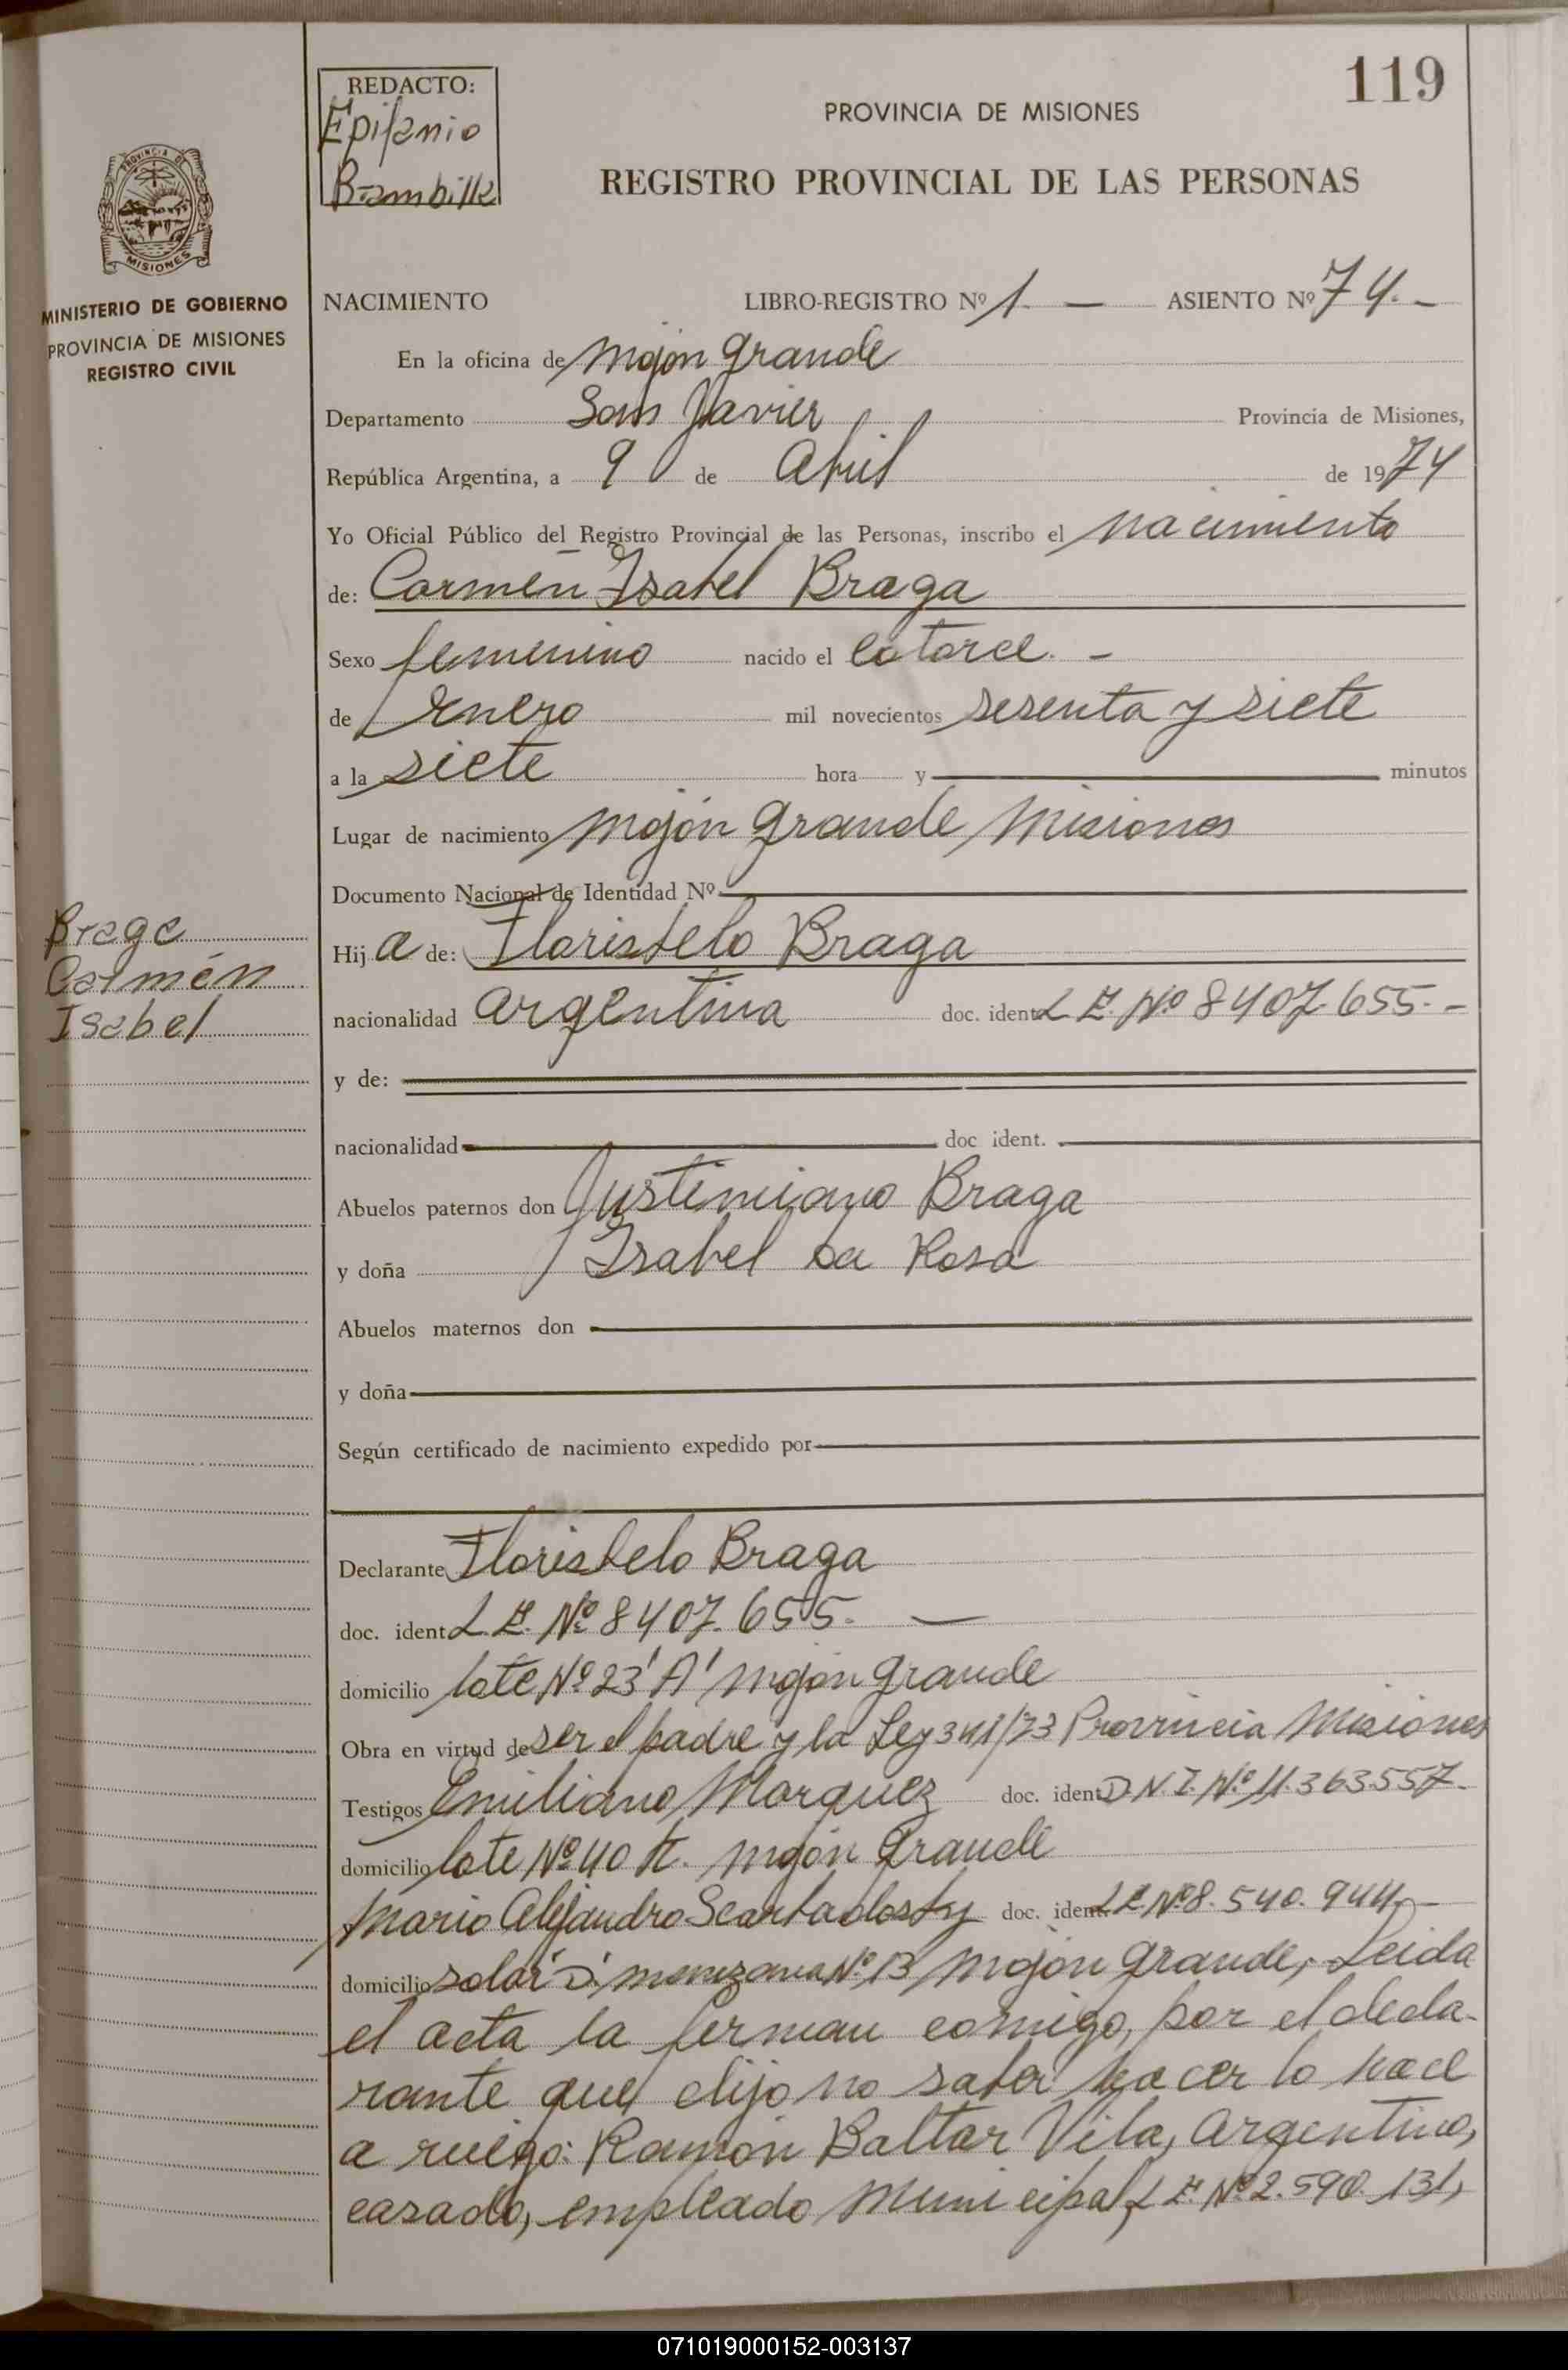 119
REDACTO:
Epifanio
Brambilla
PROVINCIA DE MISIONES
REGISTRO PROVINCIAL DE LAS PERSONAS
PROVINCIA DE
MISIONES
MINISTERIO DE GOBIERNO
PROVINCIA DE MISIONES
REGISTRO CIVIL
NACIMIENTO LIBRO-REGISTRO Nº 1. — ASIENTO Nº 74. -
En la oficina de Mojón Grande
Departamento San Javier Provincia de Misiones,
República Argentina, a 9 de Abril de 1974
Yo Oficial Público del Registro Provincial de las Personas, inscribo el nacimiento
de: Carmen Isabel Braga
Sexo femenino nacido el catorce. -
de Enero mil novecientos sesenta y siete
a la siete hora y minutos
Lugar de nacimiento Mojón Grande, Misiones
Documento Nacional de Identidad Nº
Braga
Carmén
Isabel
Hij a de: Floristelo Braga
nacionalidad argentina doc. ident. L.E. Nº 8407.655. -
y de:
nacionalidad doc ident.
Abuelos paternos don Justiniano Braga
y doña Isabel Da Rosa
Abuelos maternos don
y doña
Según certificado de nacimiento expedido por
Declarante Floristelo Braga
doc. ident L.E. Nº 8407.655. —
domicilio lote Nº 23 'A' Mojón Grande
Obra en virtud de ser el padre y la Ley 341/73 Provincia Misiones
Testigos Emiliano Marquez doc. ident D.N.I. Nº 11.363.557-
domicilio lote Nº 40 Mojón Grande
Mario Alejandro doc. ident. L.E. Nº 8.540.944, -
domicilio solar D. manzana Nº 13 Mojón Grande, Leida
el acta la ferman comigo, por el decla-
rante que dijo no saber hacer lo hace
a ruego: Ramón Baltar Vila, Argentino,
casado, empleado Municipal, L.E. Nº 2.590.131,
071019000152-003137